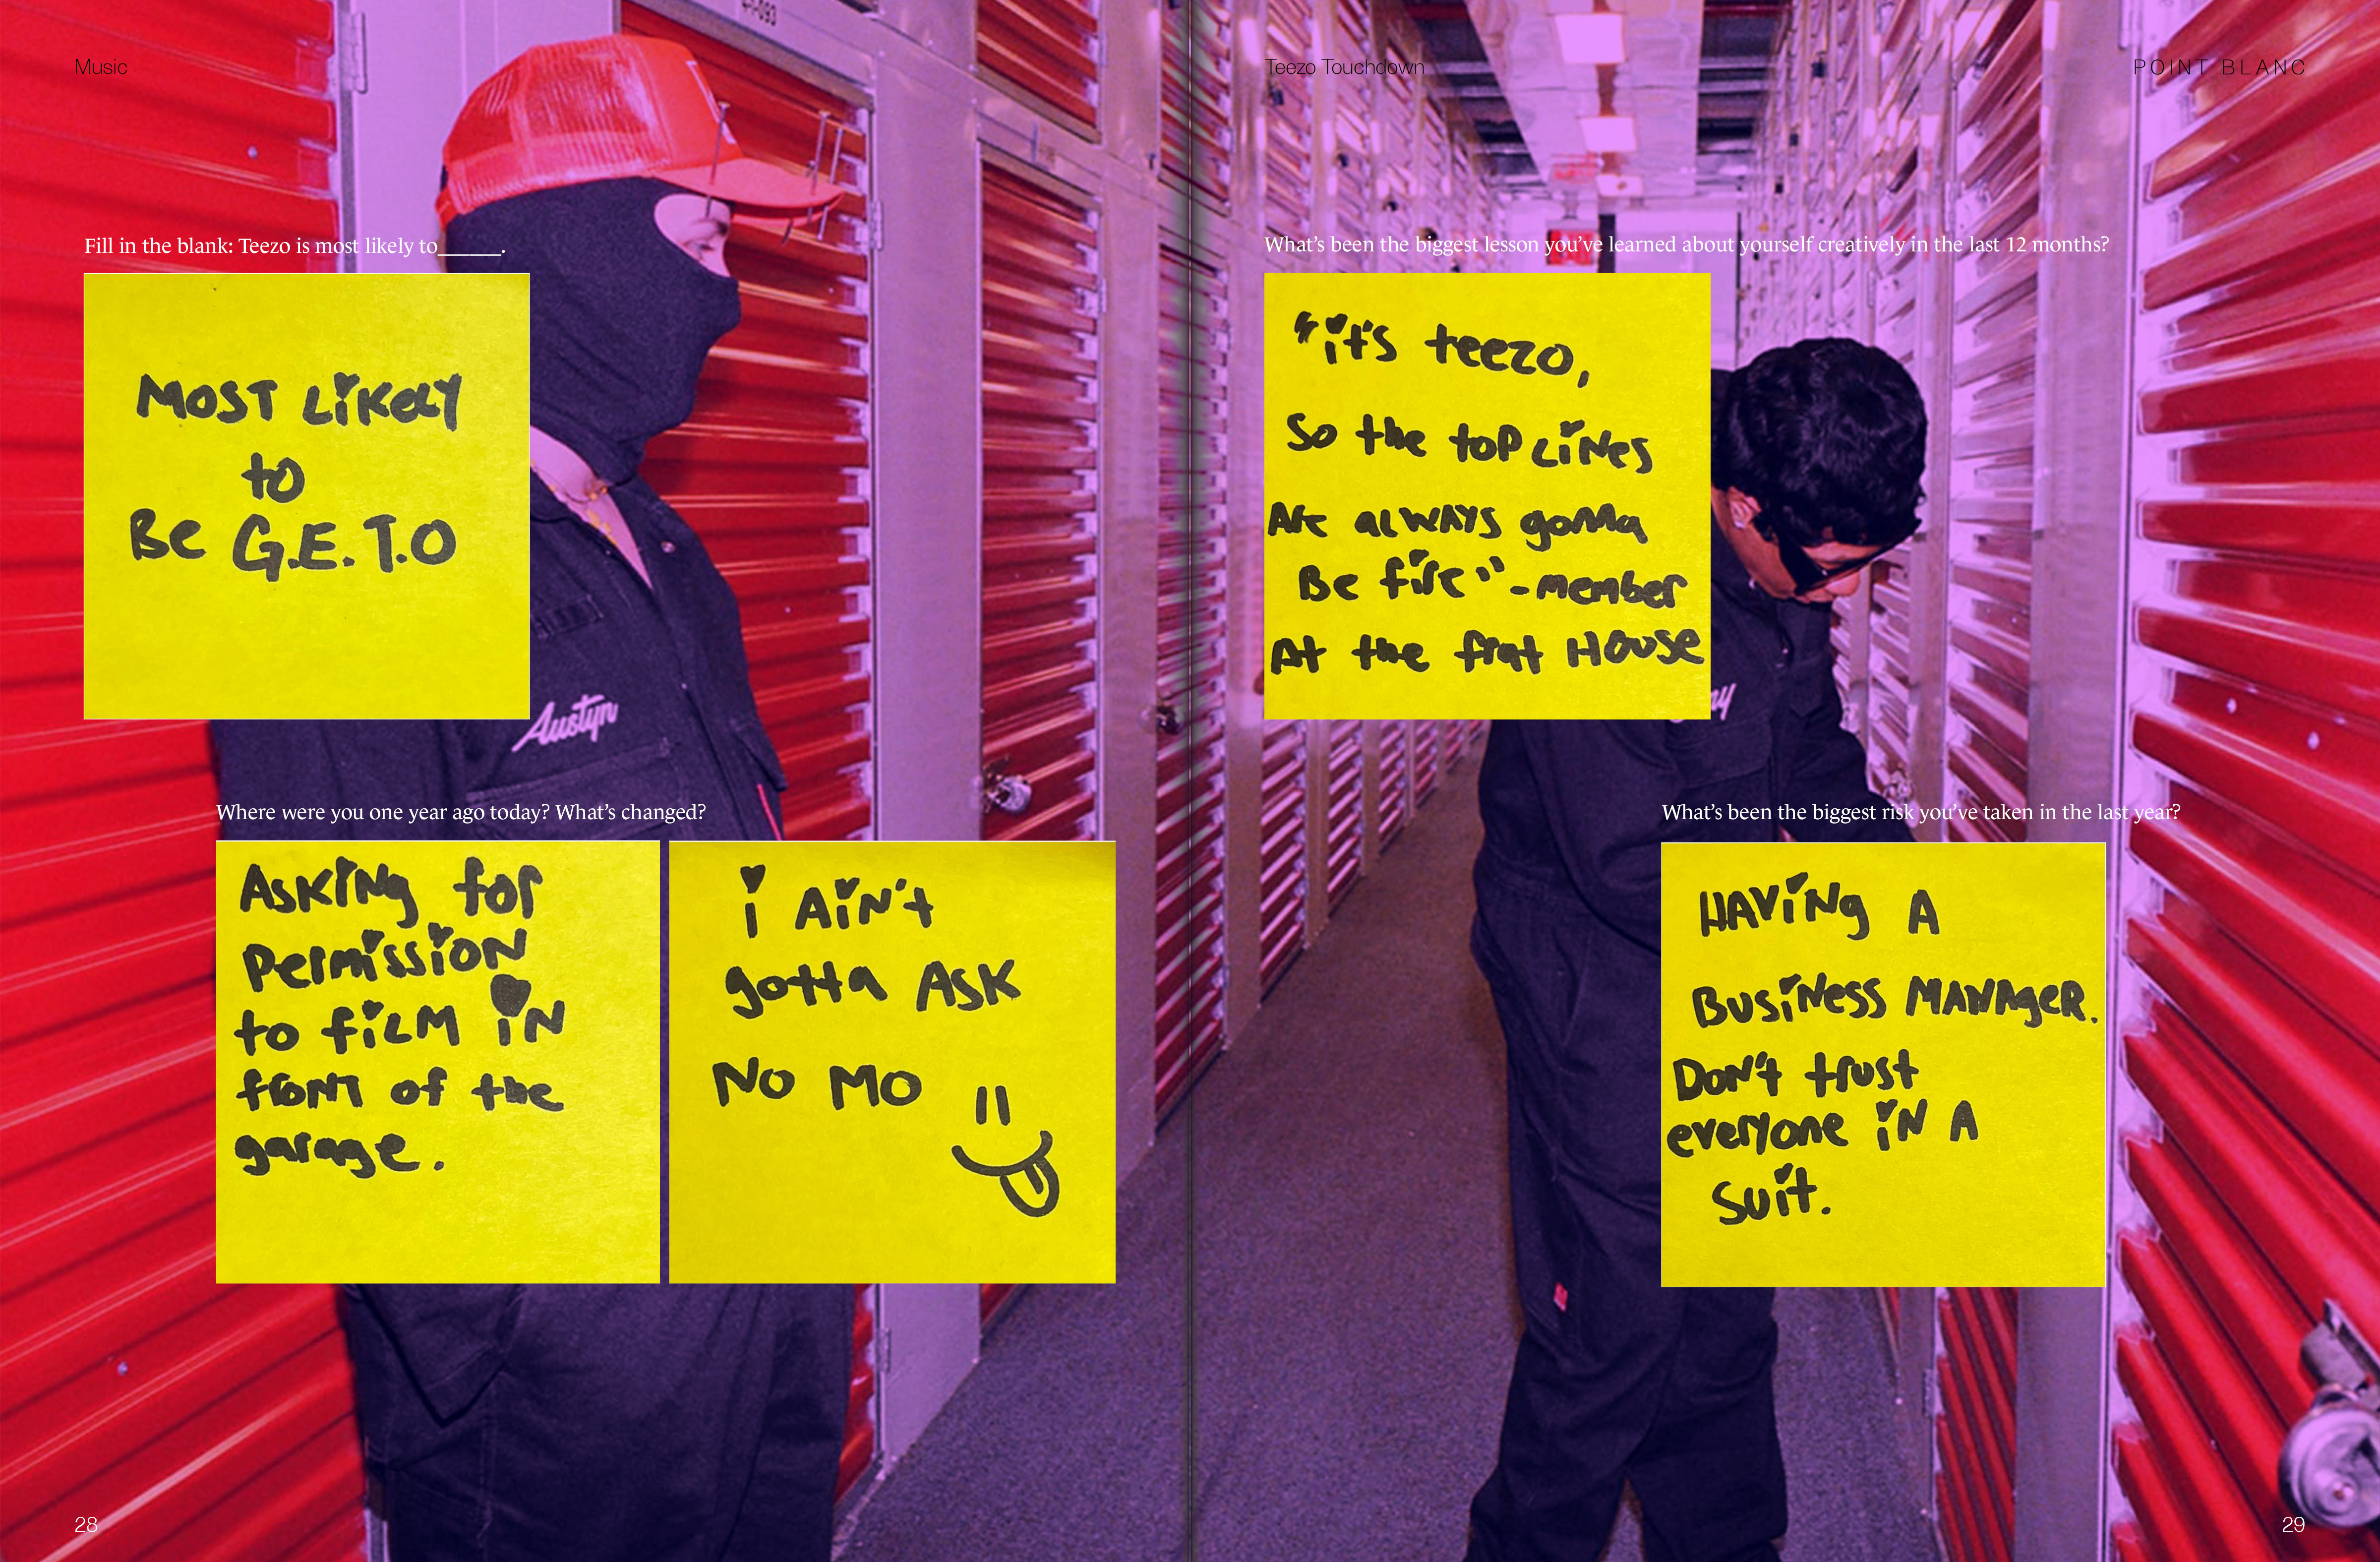 Music
Teezo Touchdown
POINT BLANC
4-1-093
Fill in the blank: Teezo is most likely to______.
MOST LiKELY
to
Be G.E.T.O
Austyn
Where were you one year ago today? What's changed?
ASKiNg for
Permission
to fiLM iN
front of the
garage.
i AiN't
gotta ASK
No MO
What's been the biggest lesson you've learned about yourself creatively in the last 12 months?
"it's teezo,
So the top LiNes
Are aLWAYS gonna
Be fire" - member
At the frat House
What's been the biggest risk you've taken in the last year?
HAViNg A
BusiNess MANAgeR.
Don't trust
everyone iN A
suit.
28
29